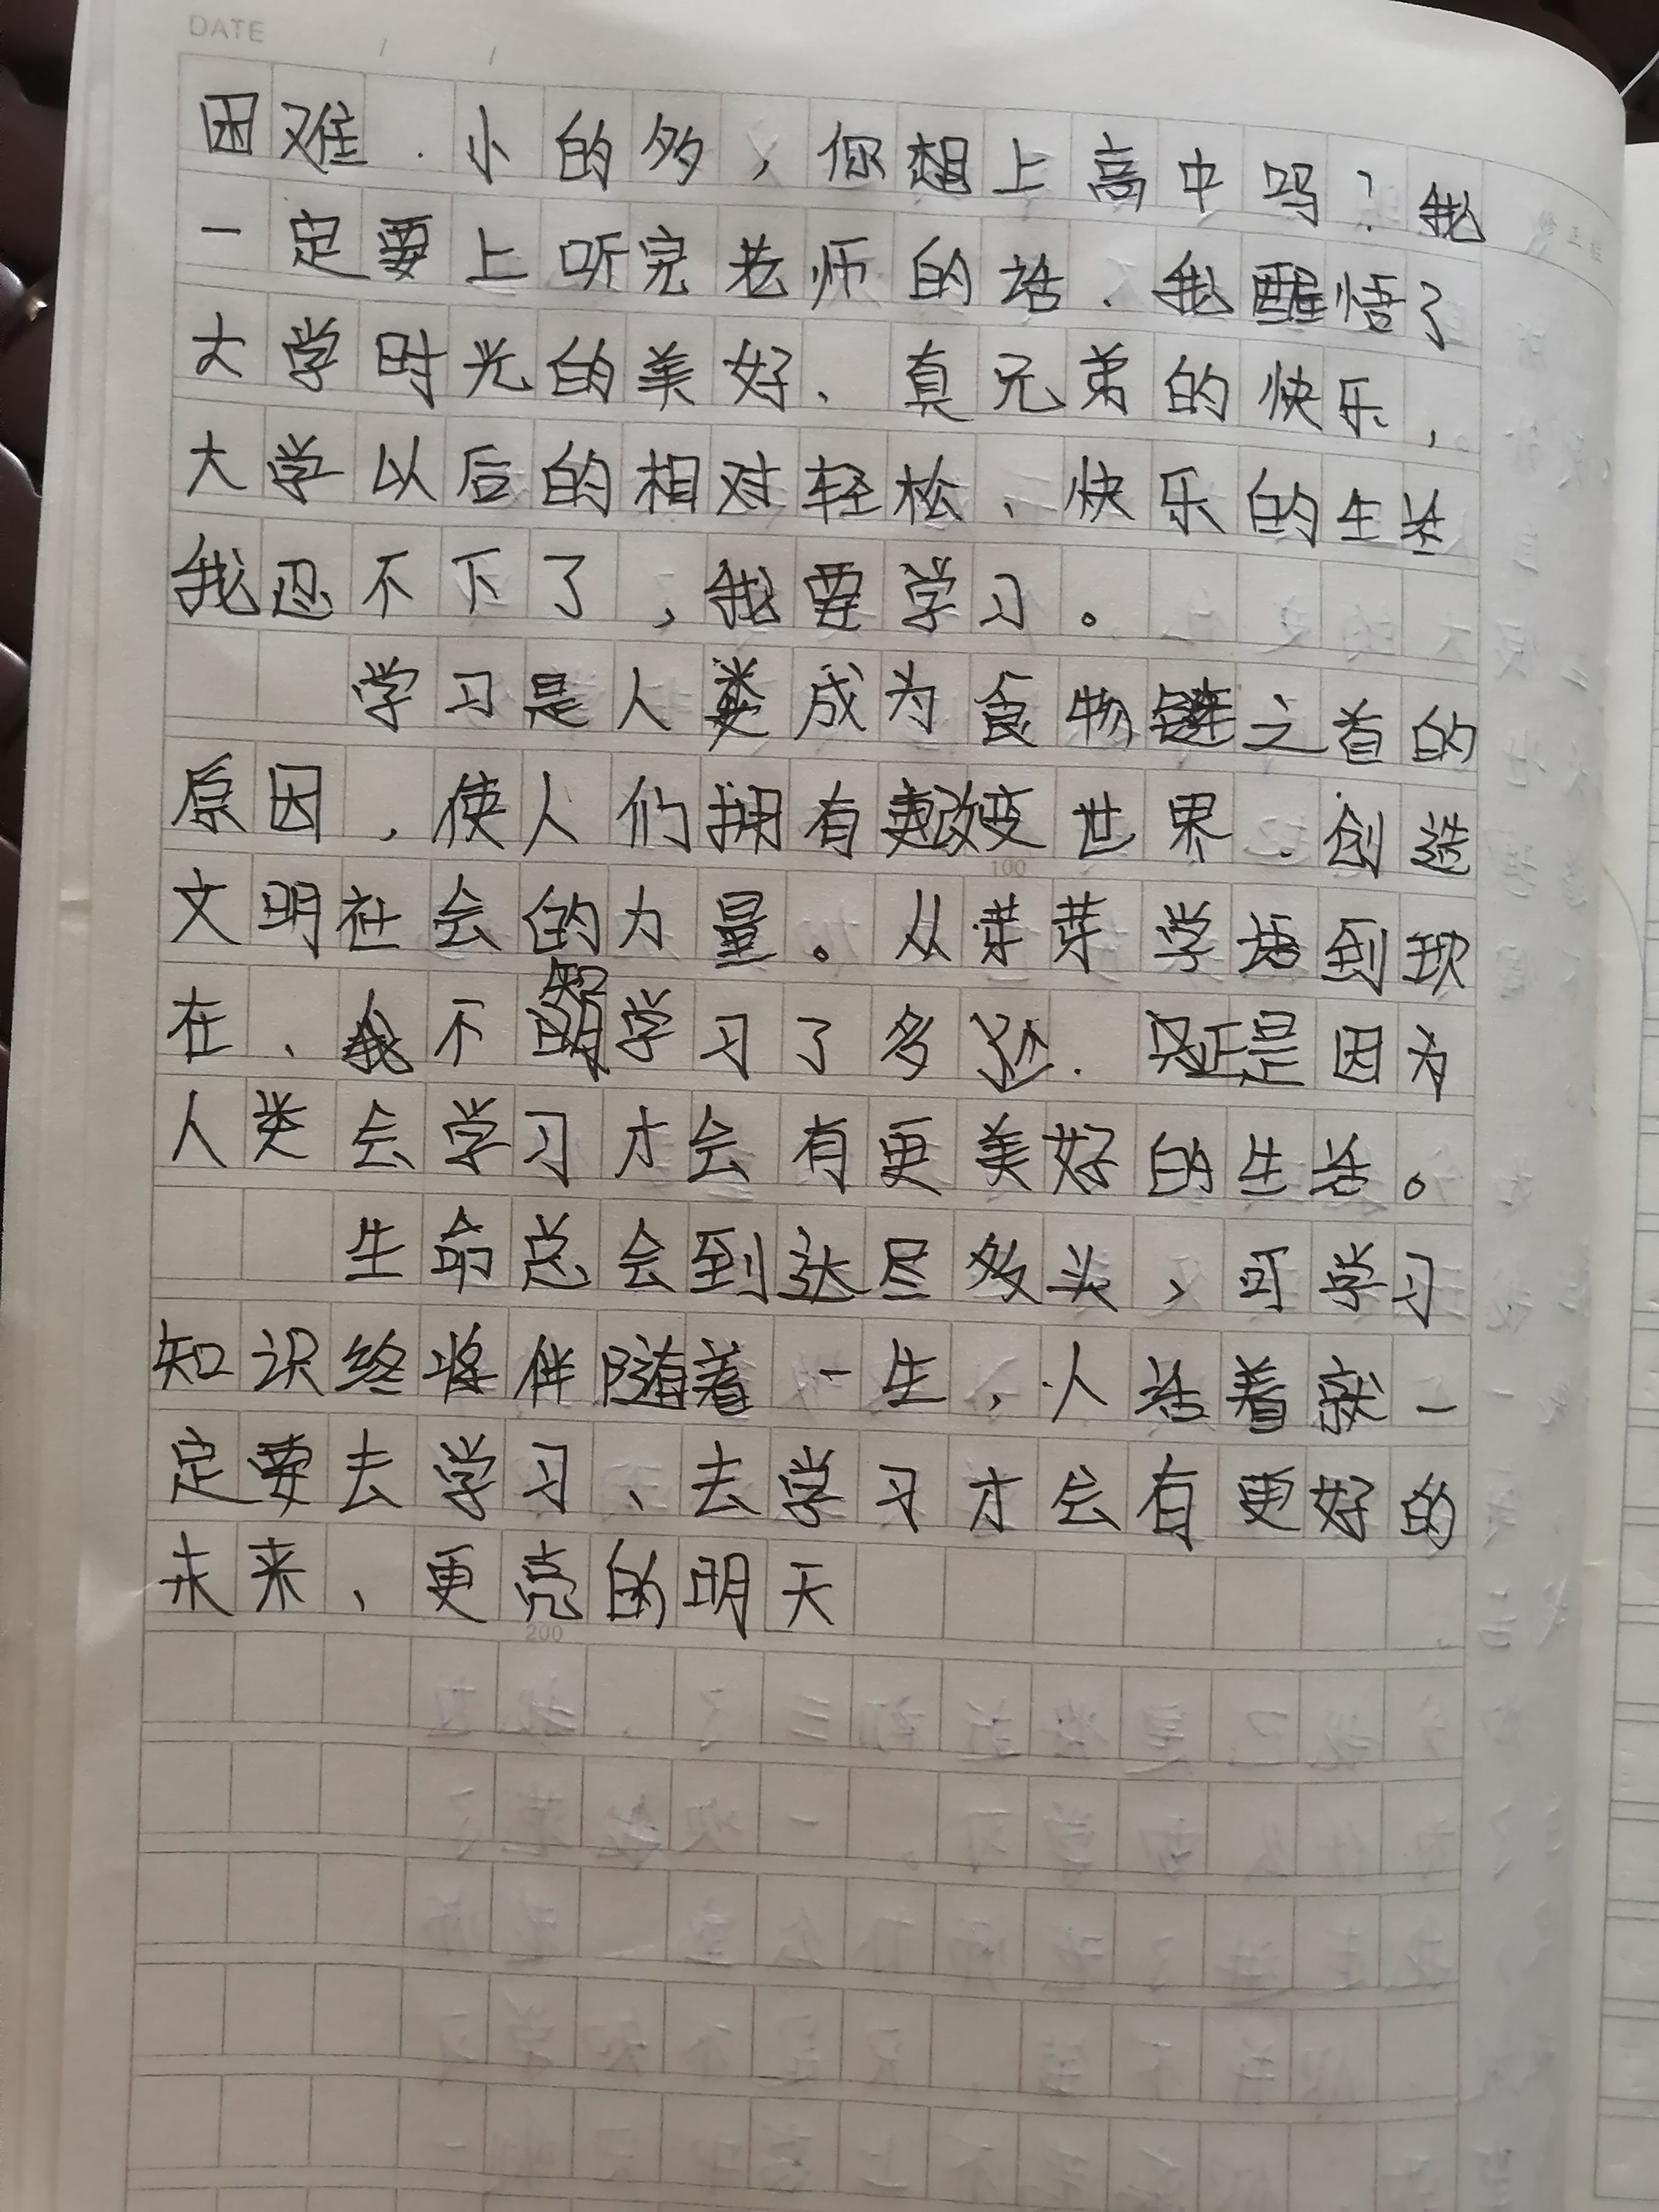 DATE / /
困难、小的多，你想上高中吗？我
一定要上听完老师的话、我醒悟了
大学时光的美好、真兄弟的快乐，
大学以后的相对轻松、快乐的生活
我忍不下了，我要学习。
学习是人类成为食物链之首的
原因，使人们拥有改变世界、创造
100
文明社会的力量。从芽芽学语到现
在、我不知学习了多少、正是因为
人类会学习才会有更美好的生活。
生命总会到达尽头，可学习
知识终将伴随着一生，人活着就一
定要去学习、去学习才会有更好的
未来、更亮的明天
200